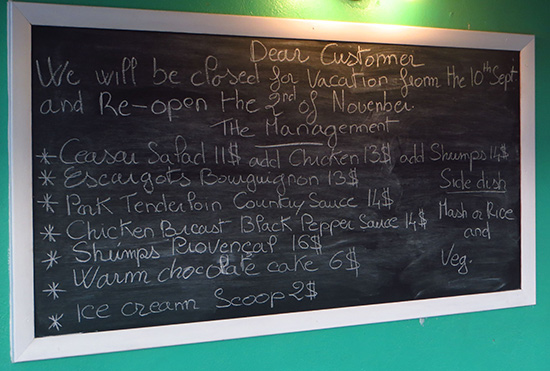 Dear Customer
We will be closed for Vacation from the 10th Sept
and Re-open the 2nd of November.
The Management
* Ceasar Salad 11$ add Chicken 13$ add Shrimps 14$
* Escargots Bourguignon 13$
* Pork Tenderloin Country Sauce 14$
* Chicken Breast Black Pepper Sauce 14$
* Shrimps Provençal 16$
* Warm chocolate cake 6$
* Ice cream Scoop 2$
Side dish
Mash or Rice
and
Veg.